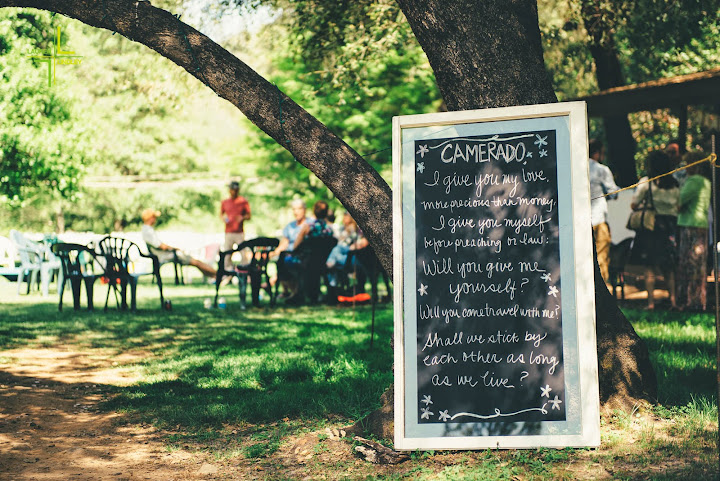 CAMERADO
I give you my love,
more precious than money,
I give you myself
before preaching or law:
Will you give me
yourself?
Will you come travel with me?
Shall we stick by
each other as long
as we live?